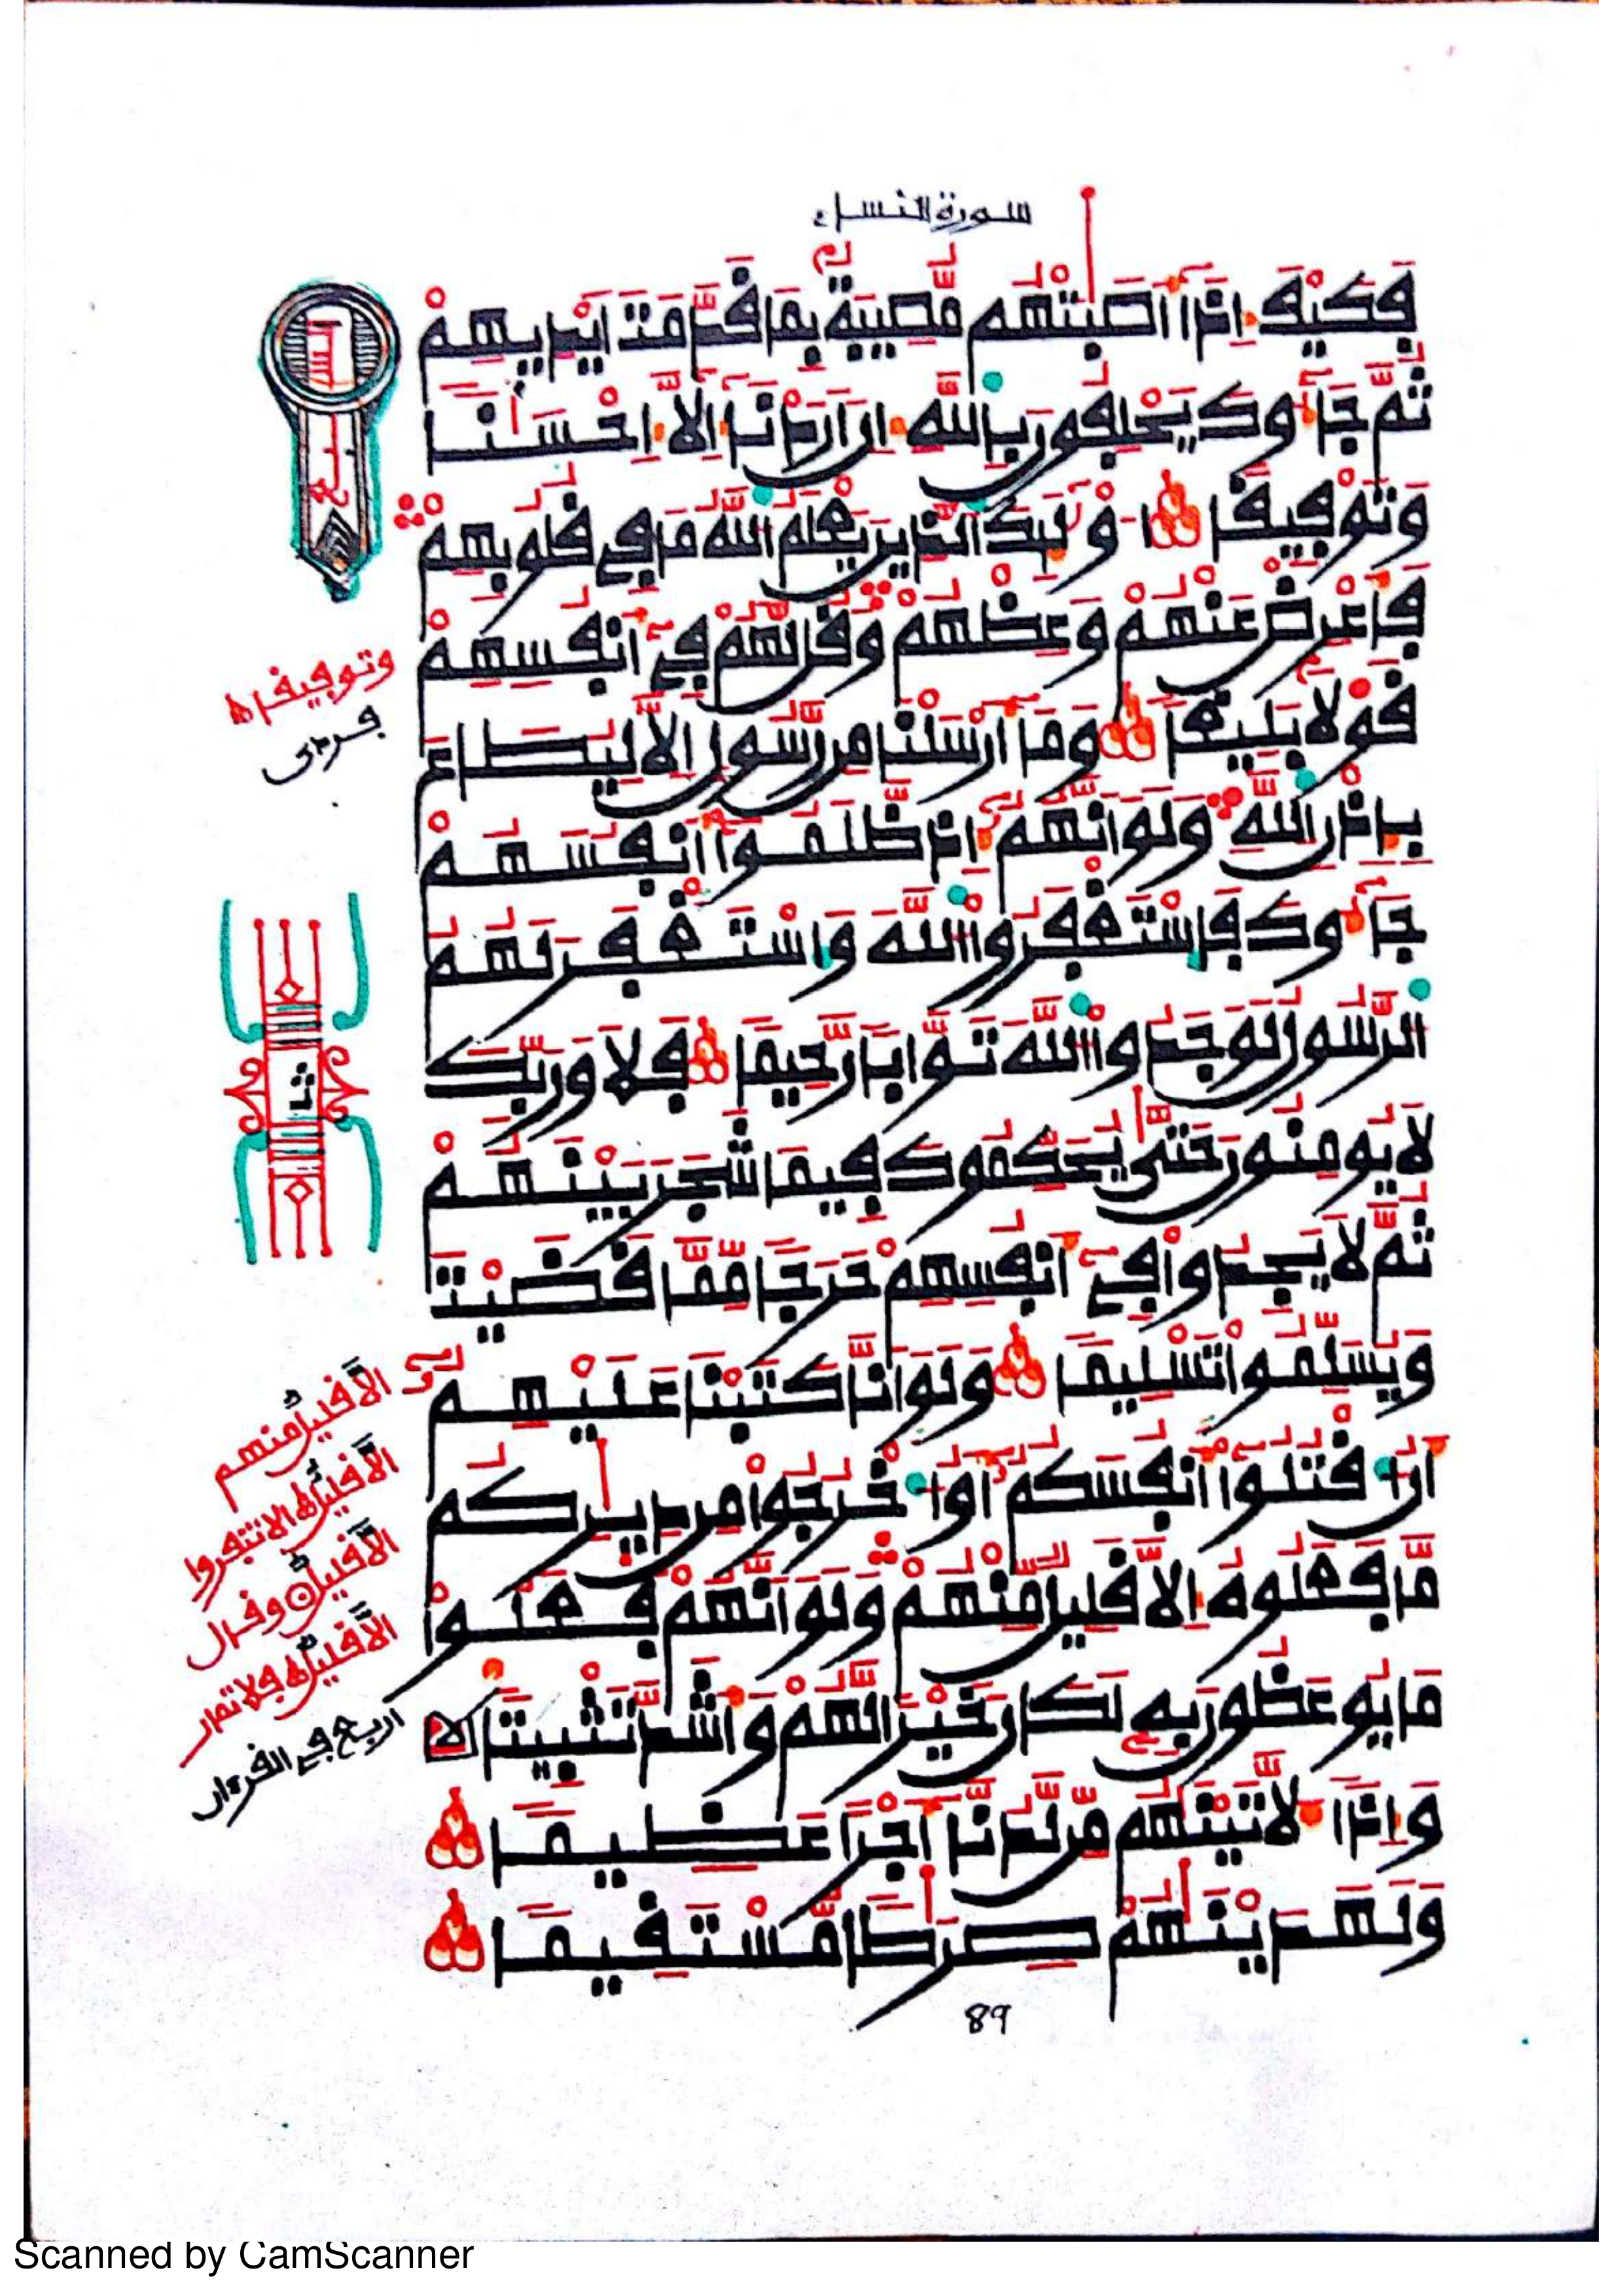 سورة النساء
فَكَيْفَ إِذَا أَصَٰبَتْهُم مُّصِيبَةٌ بِمَا قَدَّمَتَ ايْدِيهِمْ
ثُمَّ جَآءُوكَ يَحْلِفُونَ بِاللَّهِ إِنَ ارَدْنَا إِلَّا إِحْسَٰنًا
وَتَوْفِيقًا أُوْلَٰئِكَ الذِينَ يَعْلَمُ اللَّهُ مَا فِي قُلُوبِهِمْ
فَأَعْرِضْ عَنْهُمْ وَعِظْهُمْ وَقُل لَّهُمْ فِي أَنفُسِهِمْ
قَوْلًا بَلِيغًا وَمَا أَرْسَلْنَا مِن رَّسُولٍ إِلَّا لِيُطَاعَ
بِإِذْنِ اللَّهِ وَلَوَ انَّهُمُ إِذ ظَّلَمُوا أَنفُسَهُمْ
جَآءُوكَ فَاسْتَغْفَرُوا اللَّهَ وَاسْتَغْفَرَ لَهُمُ
الرَّسُولُ لَوَجَدُوا اللَّهَ تَوَّابًا رَّحِيمًا فَلَا وَرَبِّكَ
لَا يُومِنُونَ حَتَّىٰ يُحَكِّمُوكَ فِيمَا شَجَرَ بَيْنَهُمْ
ثُمَّ لَا يَجِدُوا فِي أَنفُسِهِمْ حَرَجًا مِّمَّا قَضَيْتَ
وَيُسَلِّمُوا تَسْلِيمًا وَلَوَ انَّا كَتَبْنَا عَلَيْهِمُ
أَنُ اقْتُلُوا أَنفُسَكُمُ أَوُ اخْرُجُوا مِن دِيَٰرِكُم
مَّا فَعَلُوهُ إِلَّا قَلِيلٌ مِّنْهُمْ وَلَوَ انَّهُمْ فَعَلُوا
مَا يُوعَظُونَ بِهِ لَكَانَ خَيْرًا لَّهُمْ وَأَشَدَّ تَثْبِيتًا
وَإِذًا لَّأَتَيْنَٰهُم مِّن لَّدُنَّا أَجْرًا عَظِيمًا
وَلَهَدَيْنَٰهُمْ صِرَٰطًا مُّسْتَقِيمًا
89
وتوفيقا
فردى
ثمن
إلا قليل منهم
إلا قليلا
إلا قليلا وقال
إلا قليلا فلا تمار
أربع في القرءان
Scanned by CamScanner